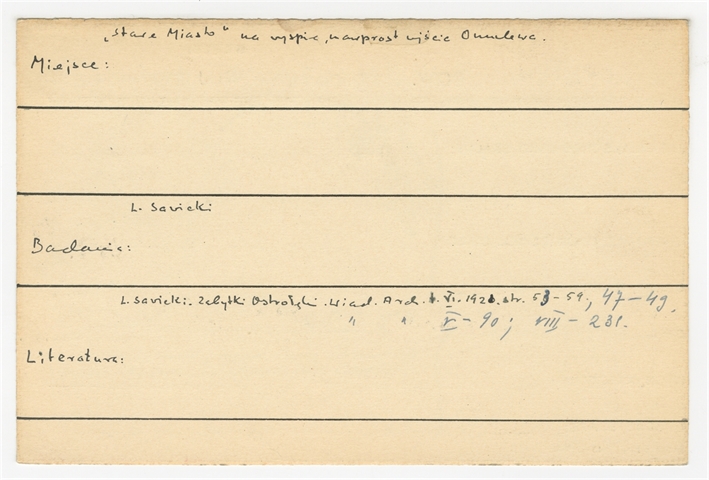 „Stare Miasto" na wyspie, nawprost ujścia Omulewa.
Miejsce:
L. Sawicki
Badania:
L. Sawicki. Zabytki Ostrołęki. Wiad. Arch. t. VI. 1921. str. 53-59.; 47-49.
" " V - 90; VIII - 231.
Literatura: